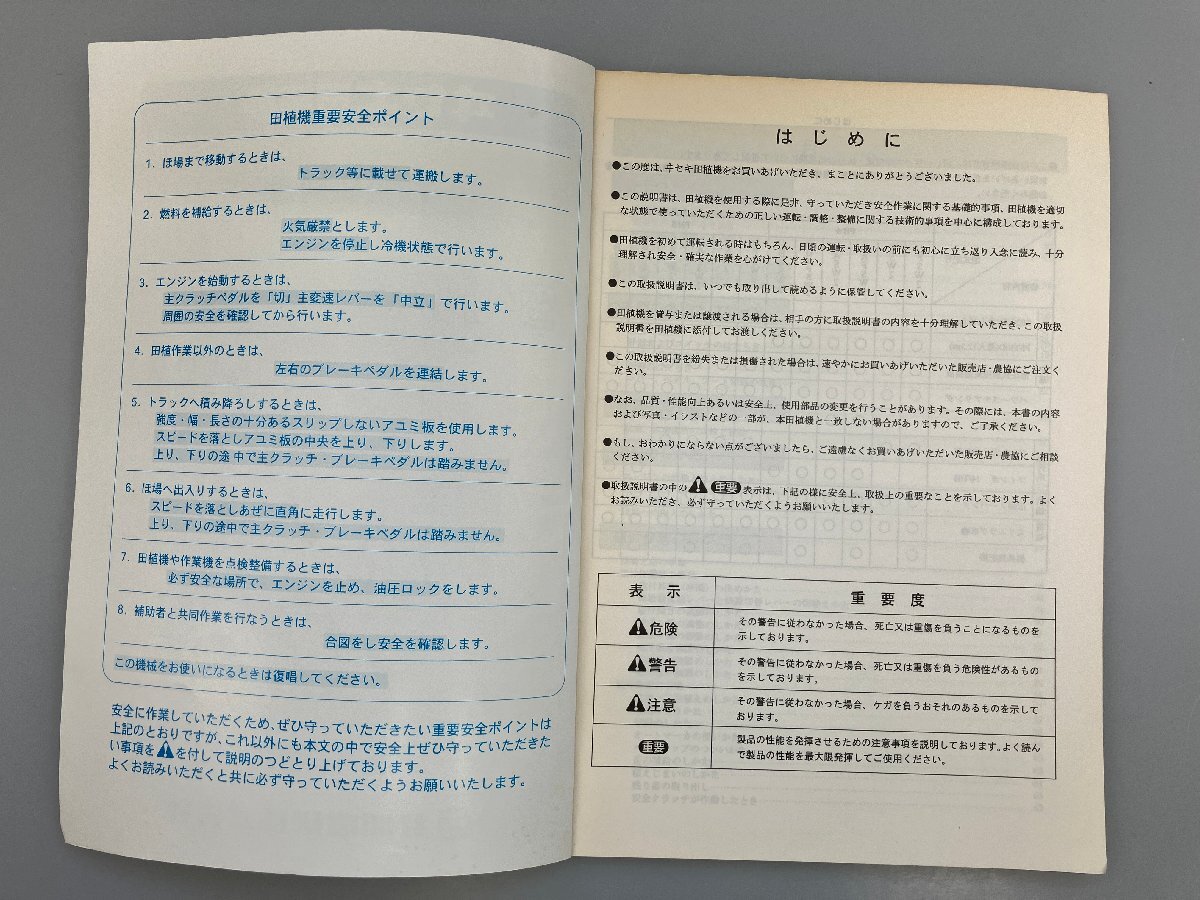 田植機重要安全ポイント
1. ほ場まで移動するときは、
トラック等に載せて運搬します。
2. 燃料を補給するときは、
火気厳禁とします。
エンジンを停止し冷機状態で行います。
3. エンジンを始動するときは、
主クラッチペダルを「切」主変速レバーを「中立」で行います。
周囲の安全を確認してから行います。
4. 田植作業以外のときは、
左右のブレーキペダルを連結します。
5. トラックへ積み降ろしするときは、
強度・幅・長さの十分あるスリップしないアユミ板を使用します。
スピードを落としアユミ板の中央を上り、下りします。
上り、下りの途中で主クラッチ・ブレーキペダルは踏みません。
6. ほ場へ出入りするときは、
スピードを落としあぜに直角に走行します。
上り、下りの途中で主クラッチ・ブレーキペダルは踏みません。
7. 田植機や作業機を点検整備するときは、
必ず安全な場所で、エンジンを止め、油圧ロックをします。
8. 補助者と共同作業を行なうときは、
合図をし安全を確認します。
この機械をお使いになるときは復唱してください。
安全に作業していただくため、ぜひ守っていただきたい重要安全ポイントは
上記のとおりですが、これ以外にも本文の中で安全上ぜひ守っていただきた
い事項を⚠を付して説明のつどとり上げております。
よくお読みいただくと共に必ず守っていただくようお願いいたします。
はじめに
●この度は、ヰセキ田植機をお買いあげいただき、まことにありがとうございました。
●この説明書は、田植機を使用する際に是非、守っていただき安全作業に関する基礎的事項、田植機を適切
な状態で使っていただくための正しい運転・調整・整備に関する技術的事項を中心に構成しております。
●田植機を初めて運転される時はもちろん、日頃の運転・取扱いの前にも初心に立ち返り入念に読み、十分
理解され安全・確実な作業を心がけてください。
●この取扱説明書は、いつでも取り出して読めるように保管してください。
●田植機を貸与または譲渡される場合は、相手の方に取扱説明書の内容を十分理解していただき、この取扱
説明書を田植機に添付してお渡しください。
●この取扱説明書を紛失または損傷された場合は、速やかにお買いあげいただいた販売店・農協にご注文く
ださい。
●なお、品質・性能向上あるいは安全上、使用部品の変更を行うことがあります。その際には、本書の内容
および写真・イラストなどの一部が、本田植機と一致しない場合がありますので、ご了承ください。
●もし、おわかりにならない点がございましたら、ご遠慮なくお買いあげいただいた販売店・農協にご相談
ください。
●取扱説明書の中の⚠ 重要 表示は、下記の様に安全上、取扱上の重要なことを示しております。よく
お読みいただき、必ず守っていただくようお願いいたします。
表示 重要度
⚠危険 その警告に従わなかった場合、死亡又は重傷を負うことになるものを
示しております。
⚠警告 その警告に従わなかった場合、死亡又は重傷を負う危険性があるもの
を示しております。
⚠注意 その警告に従わなかった場合、ケガを負うおそれのあるものを示して
おります。
重要 製品の性能を発揮させるための注意事項を説明しております。よく読ん
で製品の性能を最大限発揮してご使用ください。